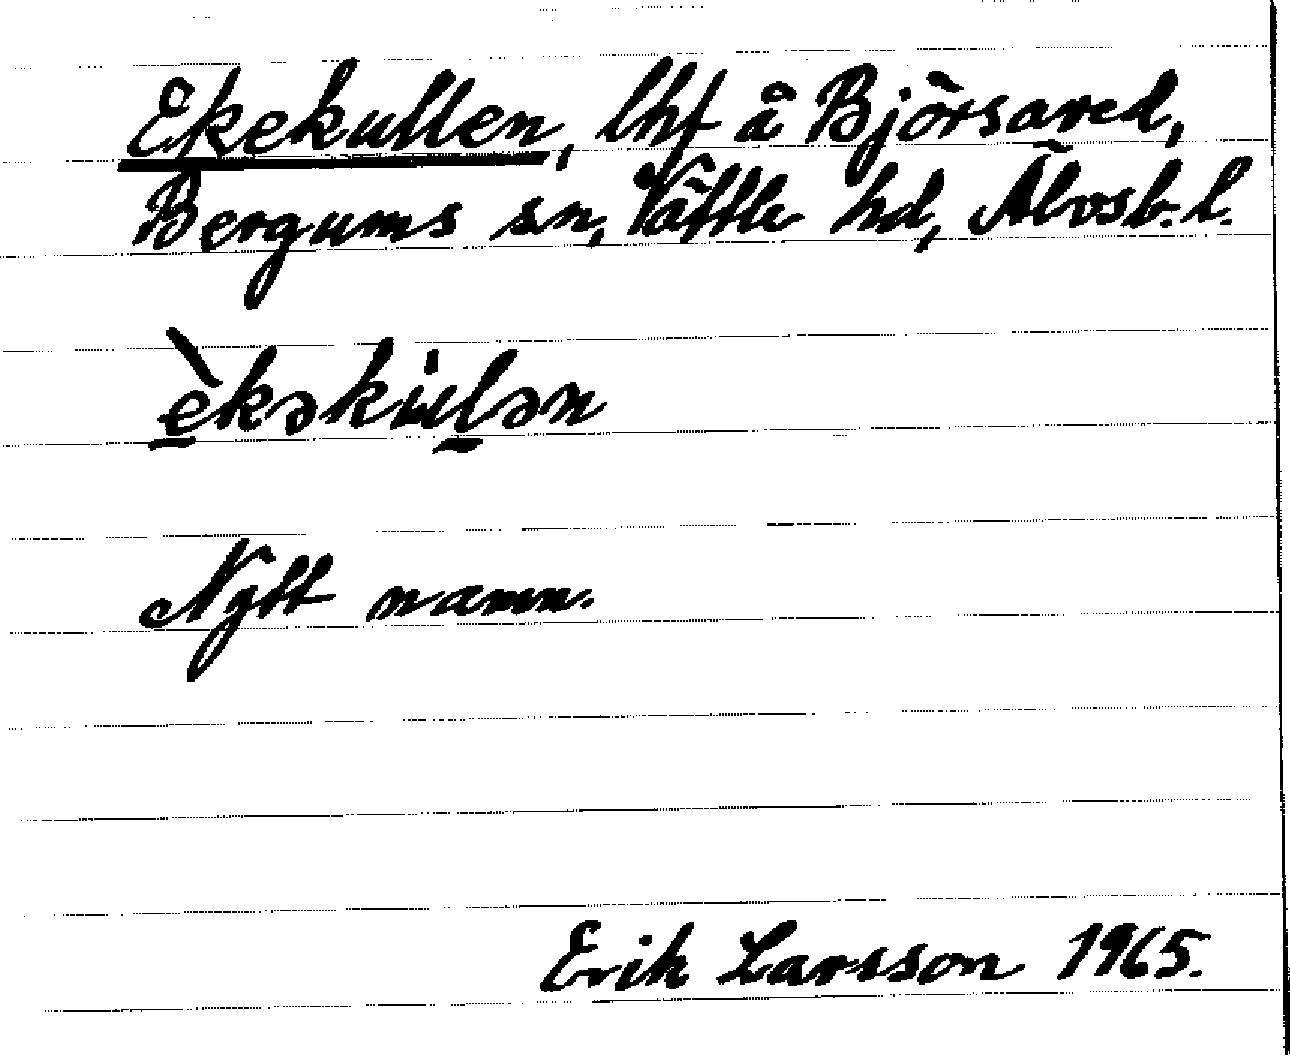 Ekekullen, lhf å Björsared,
Bergums sn, Vättle hd, Älvsb. l.
èkəku̇lən
Nytt namn.
Erik Larsson 1965.